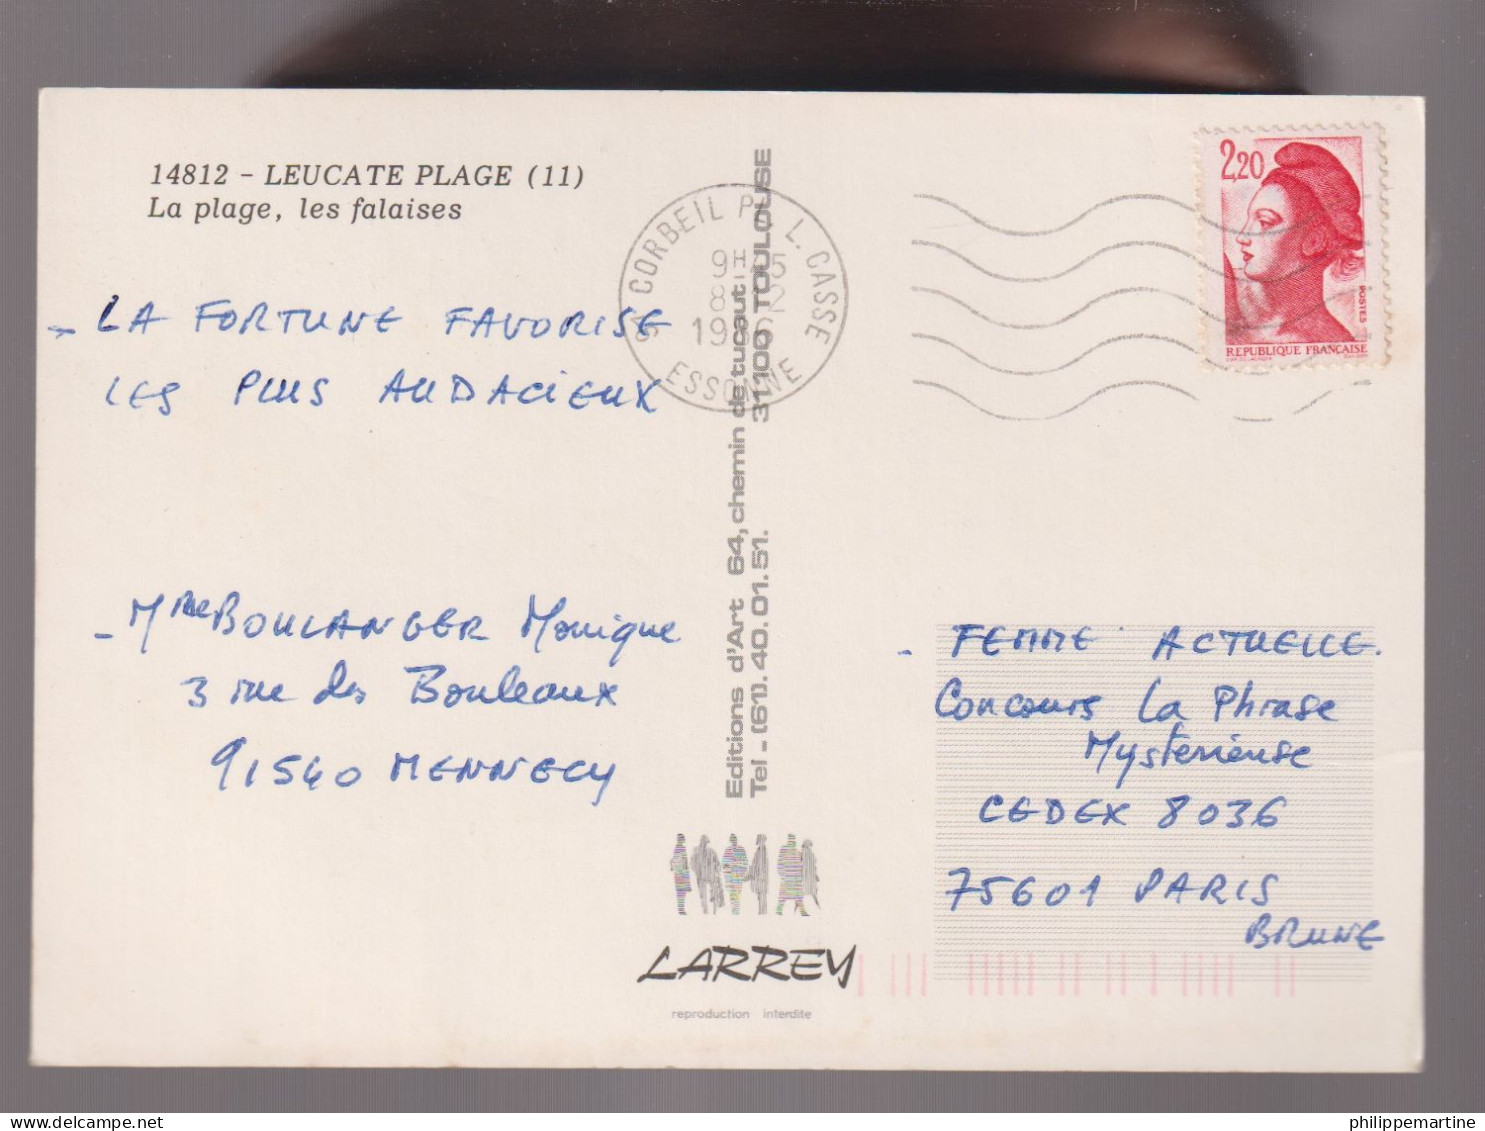 14812 - LEUCATE PLAGE (11)
La plage, les falaises
LA FORTUNE FAVORISE
LES PLUS AUDACIEUX
- Mme BOULANGER Monique
3 rue des Bouleaux
91540 MENNECY
Editions d'Art 64, chemin de tucaut 31100 TOULOUSE
Tel - (61). 40.01.51.
LARREY
reproduction interdite
CORBEIL L. CASSE
ESSONNE
2,20
POSTES
REPUBLIQUE FRANÇAISE
- FEMME ACTUELLE.
Concours La Phrase
Mysterieuse
CEDEX 8036
75601 PARIS
BRUNE
philippemartine